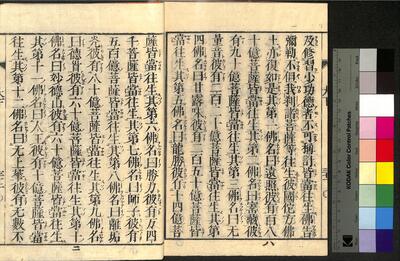 及修習少功德者不可稱計皆當往生佛告
彌勒不但我刹諸菩薩等往生彼國他方佛
土亦復如是其第一佛名曰遠照彼有百八
十億菩薩皆當往生其第二佛名曰寶藏彼
有九十億菩薩皆當往生其第三佛名曰无
量音彼有二百二十億菩薩皆當往生其第
四佛名曰甘露味彼有二百五十億菩薩皆
當往生其第五佛名曰龍勝彼有十四億菩
薩皆當往生其第六佛名曰勝力彼有万四
千菩薩皆當往生其第七佛名曰師子彼有
五百億菩薩皆當往生其第八佛名曰離垢
光彼有八十億菩薩皆當往生其第九佛名
曰德首彼有六十億菩薩皆當往生其第十
佛名曰妙德山彼有六十億菩薩皆當往生
其第十一佛名曰人王彼有十億菩薩皆當
往生其第十二佛名曰无上華彼有无數不
KODAK Color Control Patches